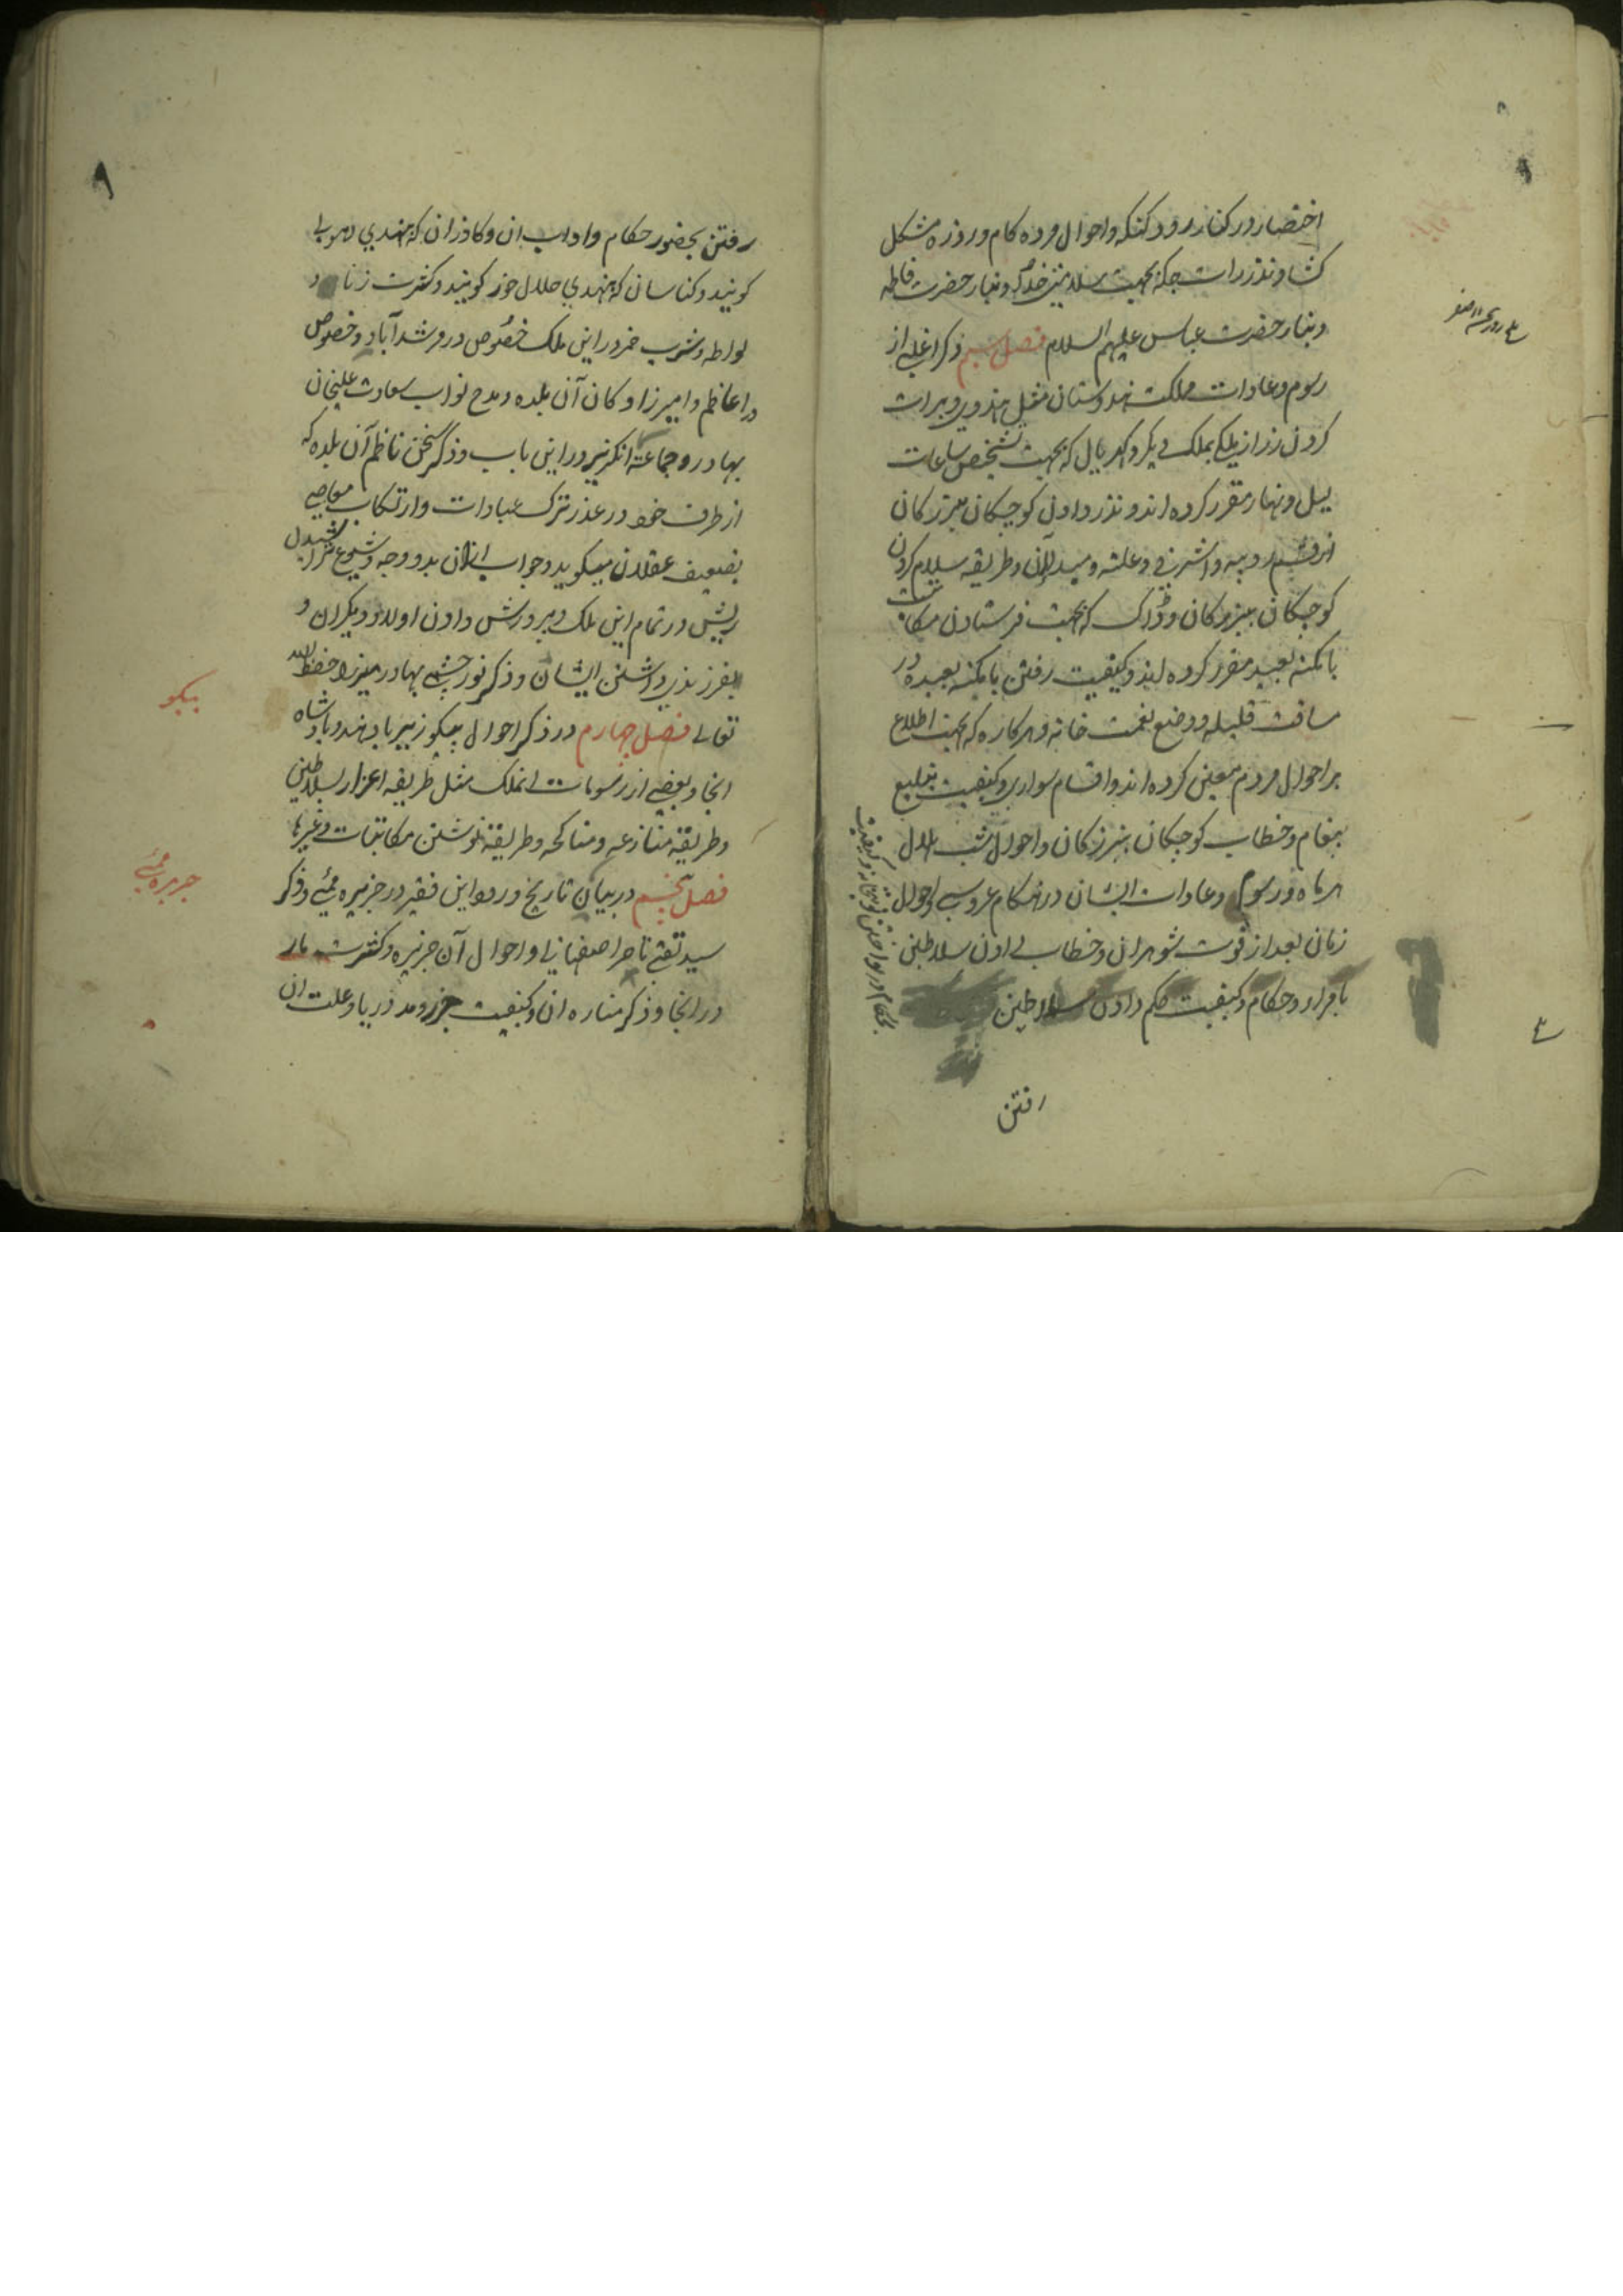 اختصار در کنار رود کنکه و احوال مرده کام و روزه مشکل
کشا و نذر رات جکه بجهت سلامتی خدا که و نیاز حضرت فاطمه
و نیاز حضرت عباس علیهم السلام فصل سیم ذکر اغلبی از
رسوم و عادات مملکت هندوستان مثل هندوی و برات
کردن زر از ملکی بملک دیگر و کهریال که بجهت تشخیص ساعات
لیل و نهار مقرر کرده اند و نذر دادن کوچکان ببزرکان
از قسم روپیه و اشرفی و علت و میدان و طریقه سلام کردن
کوچکان ببزرکان و ڈاک که بجهت فرستادن مکاتبات
بامکنه بعیده مقرر کرده اند و کیفیت رفتن بامکنه بعیده در
مسافت قلیله و وضع نعمت خانه و هرکاره که بجهت اطلاع
بر احوال مردم معین کرده اند و اقسام سواری و کیفیت تبلیغ
پیغام و خطاب کوچکان ببزرکان و احوال شب هلال
هر ماه و رسوم و عادات ایشان در هنکام عروسی و احوال
زنان بعد از فوت شوهران و خطاب دادن سلاطین
بامراء و حکام و کیفیت حکم دادن سلاطین
رفتن
رفتن بحضور حکام و اداب ان و کاذران که بهندی دهوبی
کویند و کناسان که بهندی حلال خور کویند و کثرت زنا و
لواطه و شرب خمر در این ملک خصوص در مرشد آباد و خصوص
در اعاظم و امیرزادکان آن بلده و مدح نواب سعادت علیخان
بهادر و جماعة انکریز در این باب و ذکر سخن ناظم آن بلده که
از طرف خود در عذر ترک عبادات و ارتکاب معاصی
بضعیف عقلان میکوید و جواب از ان بدو وجه و شیوع تراشیدن
ریش در تمام این ملک و پرورش دادن اولاد دیکران و
بفرزندی داشتن ایشان و ذکر نور چشمی بهادر میرزا حفظه الله
تعالی فصل چهارم در ذکر احوال پیکو زیرباد هند و پادشاه
انجا و بعضی از رسومات انملک مثل طریقه اعزاز سلاطین
و طریقه منازعه و مناکحه و طریقه نوشتن مکاتبات و غیرها
فصل پنجم در بیان تاریخ ورود این فقیر در جزیره ممبئی و ذکر
سید تقی تاجر اصفهانی و احوال آن جزیره و کثرت مار
در انجا و ذکر مناره ان و کیفیت جزر و مد دریا و علت ان
پیکو
جزیره ممبئی